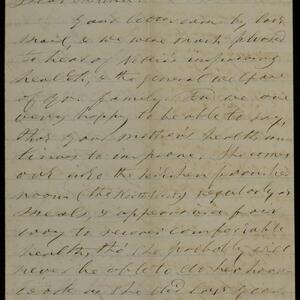 Your letter came by last
mail, & we were much pleased
to hear of improving
health, & the general welfare
of your family. And we are
very happy to be able to say,
that your mother's health con
tinues to improve. She comes
over into the kitchen
room regularly to
meals, & appears in a fair
way to recover comfortable
health, tho' she probably will
never be able to do her house
work as she did last year